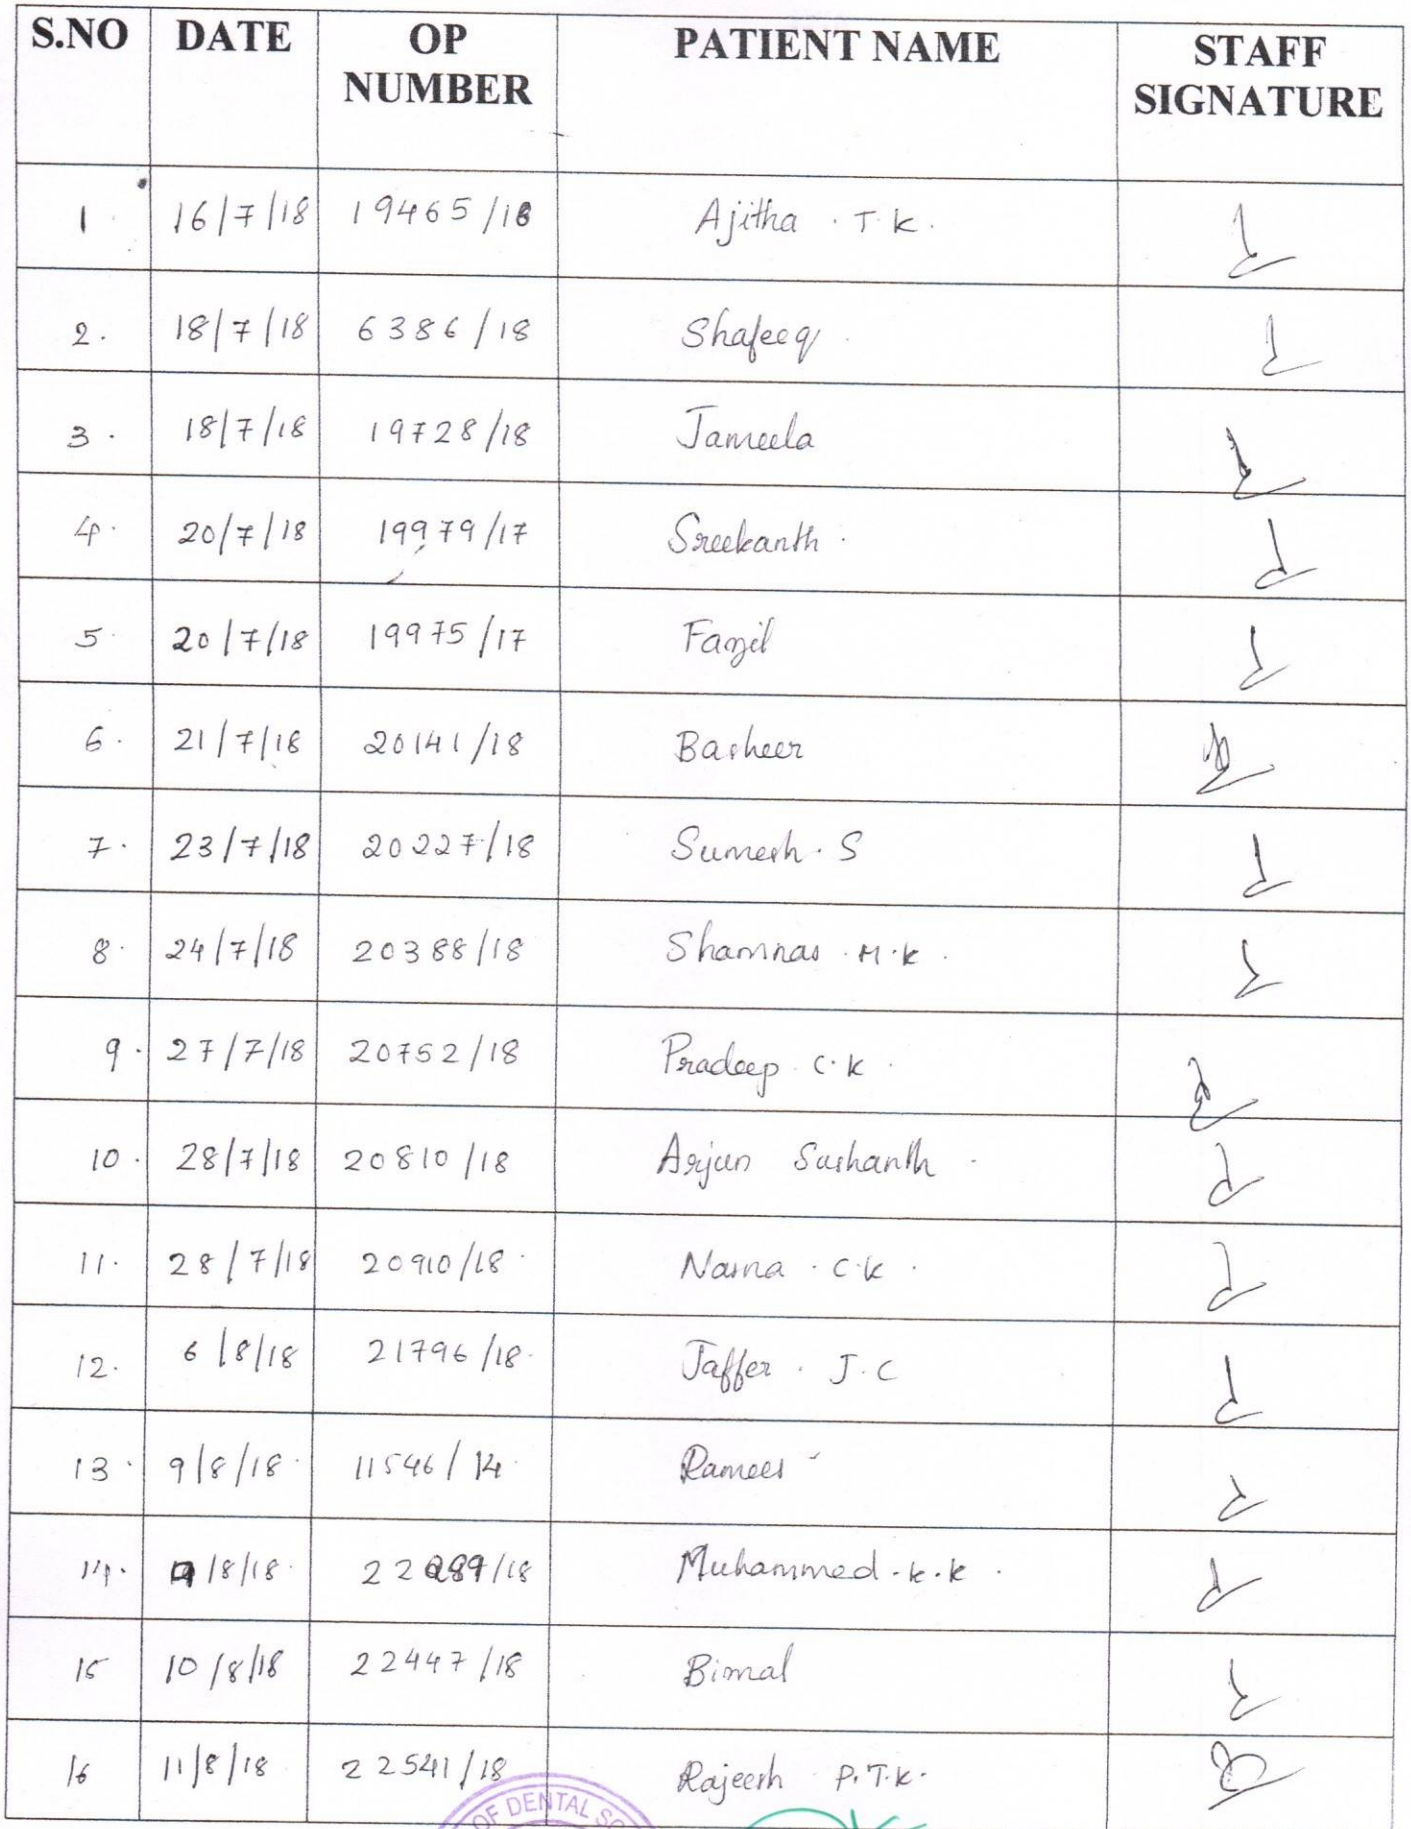 S.NO DATE OP NUMBER PATIENT NAME STAFF SIGNATURE
1 16/7/18 19465/18 Ajitha . T. K.
2. 18/7/18 6386/18 Shafeeq
3. 18/7/18 19728/18 Jameela
4. 20/7/18 19979/17 Sreekanth
5. 20/7/18 19975/17 Fazil
6. 21/7/18 20141/18 Basheer
7. 23/7/18 20227/18 Sumesh. S
8. 24/7/18 20388/18 Shamnas . M.K.
9. 27/7/18 20752/18 Pradeep C.K.
10. 28/7/18 20810/18 Arjun Sushanth
11. 28/7/18 20910/18 C.K.
12. 6/8/18 21796/18 Jaffer . J.C
13. 9/8/18 11546/14 Ramees
14. 9/8/18 22289/18 Muhammed.K.K.
15 10/8/18 22447/18 Bimal
16 11/8/18 22541/18 Rajeesh P.T.K.
OF DENTAL